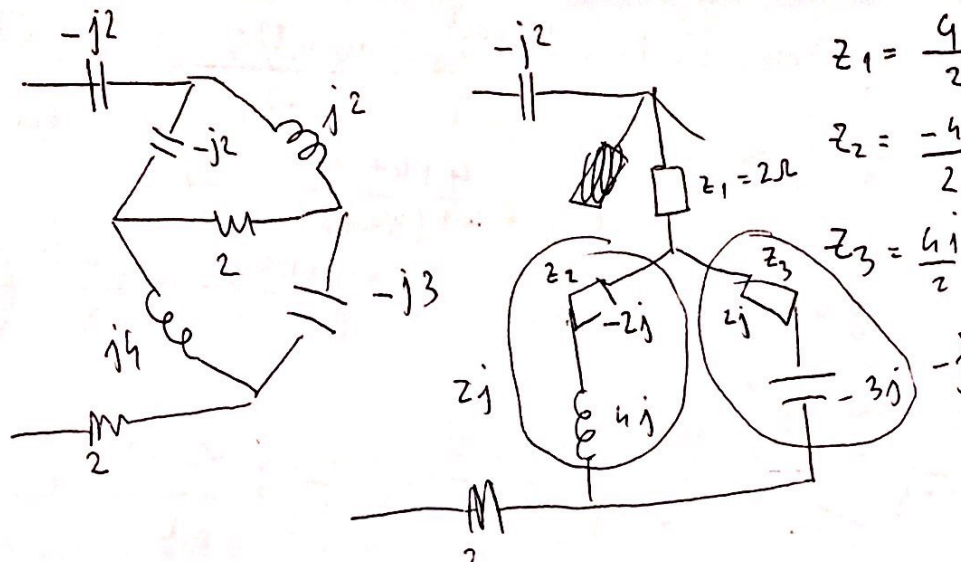 -j2
-j2
j2
2
-j3
j4
2
-j2
Z1 = 2Ω
Z2
-2j
Z3
2j
2j
4j
-3j
2
Z1 = 4/2
Z2 = -4/2
Z3 = 4j/2